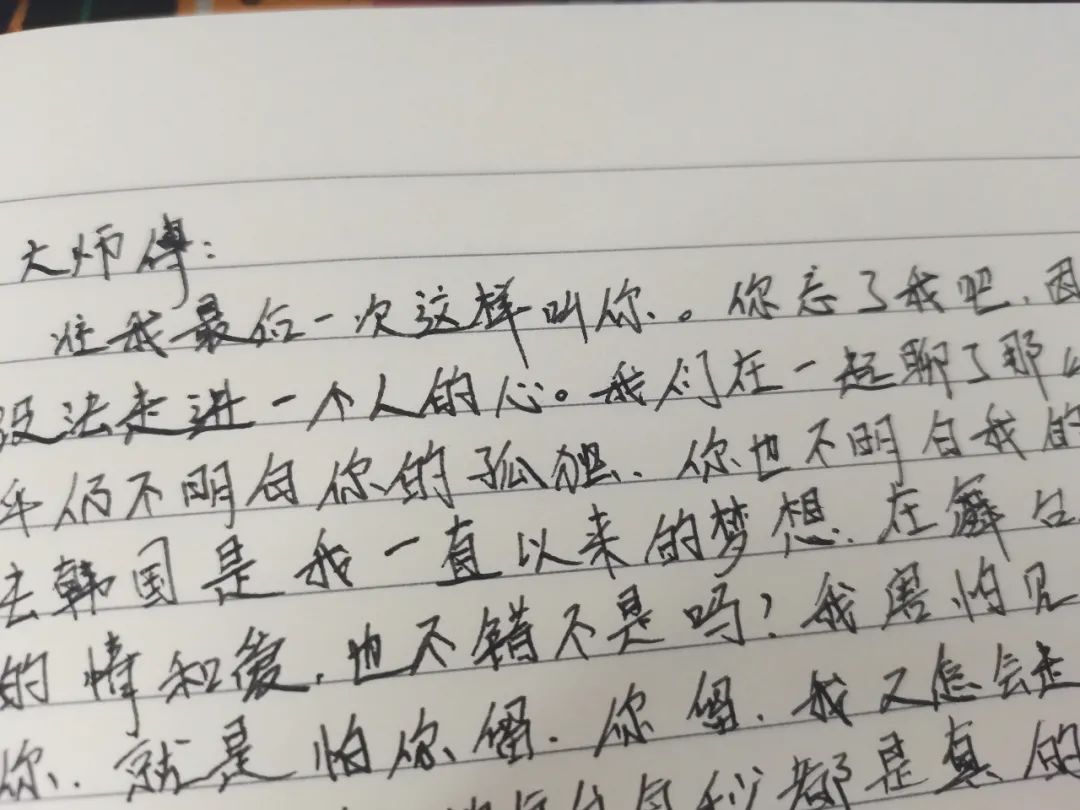 大师傅：
准我最后一次这样叫你。你忘了我吧，因
没法走进一个人的心。我们在一起聊了那么
乎仍不明白你的孤独，你也不明白我的
去韩国是我一直以来的梦想，在舞台
的情和爱，也不错不是吗？我害怕见
你，就是怕你留，你留，我又怎会走
都是真的